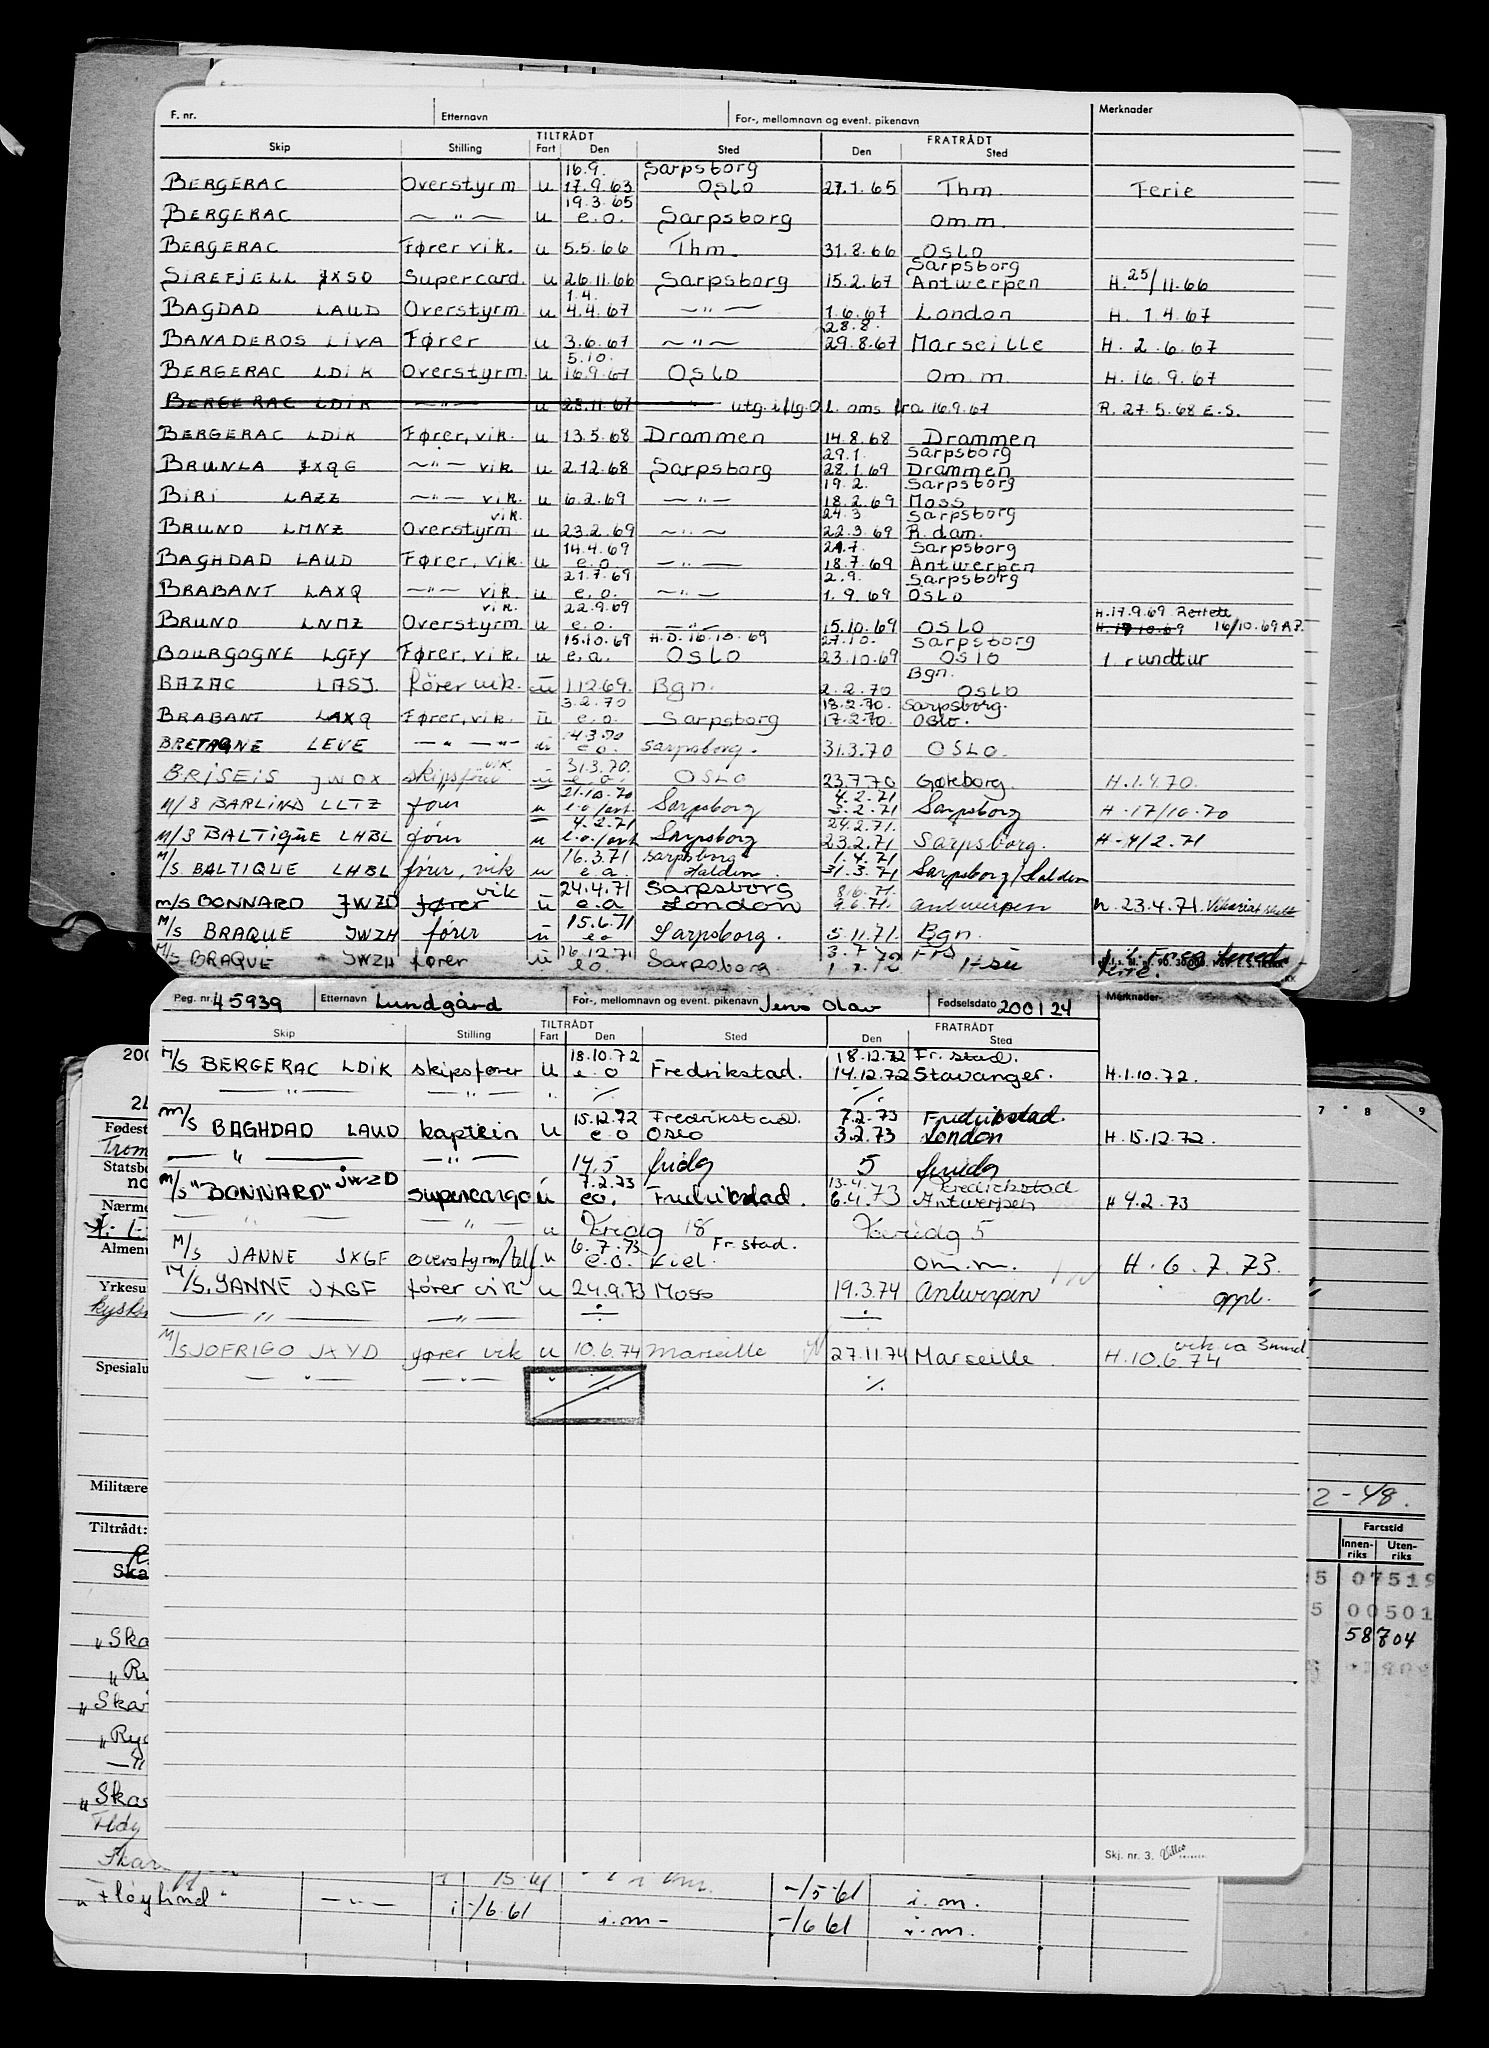 F. nr. Etternavn For-, mellomnavn og event. pikenavn Merknader
TILTRÅDT FRATRÅDT
Skip Stilling Fart Den Sted Den Sted
16.9. Sarpsborg
BERGERAC Overstyrm u 17.9.63 OSLO 27.1.65 Thm Ferie
19.3.65
BERGERAC — " — u e.o. Sarpsborg om.m.
BERGERAC Fører vik. u 5.5.66 Thm. 31.8.66 OSLO
Sarpsborg
SIREFJELL JXSO Supercard. u 26.11.66 Sarpsborg 15.2.67 Antwerpen H. 25/11.66
1.4.
BAGDAD LAUD Overstyrm u 4.4.67 — " — 1.6.67 London H. 1.4.67
28.8.
BANADEROS LIVA Fører u 3.6.67 — " — 29.8.67 Marseille H. 2.6.67
5.10.
BERGERAC LDIK Overstyrm. u 16.9.67 OSLO om.m. H. 16.9.67
BERGERAC LDIK — " — u 28.11.67 — " — utg. iflg. O.l. oms. fra 16.9.67 R. 27.5.68 E.S.
BERGERAC LDIK Fører, vik. u 13.5.68 Drammen 14.8.68 Drammen
29.1. Sarpsborg
BRUNLA JXQG — " — vik u 2.12.68 Sarpsborg 28.1.69 Drammen
19.2. Sarpsborg
BIRI LAZZ — " — vik. u 6.2.69 — " — 18.2.69 Moss
vik. 24.3 Sarpsborg
BRUNO LMNZ Overstyrm u 23.2.69 — " — 22.3.69 R.dam.
14.4.69 21.7. Sarpsborg
BAGHDAD LAUD Fører, vik. u e.o — " — 18.7.69 Antwerpen
21.7.69 2.9. Sarpsborg
BRABANT LAXQ — " — vik u e.o. — " — 1.9.69 OSLO
vik. 22.9.69 H.17.9.69 Rettett
BRUNO LNMZ Overstyrm u e.o. — " — 15.10.69 OSLO H.17 10.69 16/10.69 A.F.
15.10.69 H.D. 16.10.69 27.10. Sarpsborg
BOURGOGNE LGFY Fører, vik. u e.a. OSLO 23.10.69 OSLO 1 rundtur
Bgn.
BAZAC LASJ. fører vik. u 1.12.69. Bgn. 2.2.70 OSLO
3.2.70 18.2.70. Sarpsborg.
BRABANT LAXQ Fører, vik. u e.o. Sarpsborg 17.2.70. OSLO.
4.3.70
BRETAGNE LEVE — " — " — u e.o. Sarpsborg. 31.3.70 OSLO.
vik 31.3.70.
BRISEIS JWOX skipsfører u e.o. OSLO 23.7.70 Gøteborg. H.1.4.70.
21.10.70 4.2.71
M/S BARLIND LLTZ fører u e.o/avt. Sarpsborg 3.2.71 Sarpsborg H-17/10-70
4.2.71 24.2.71.
M/S BALTIQUE LHBL fører u e.o./avt Sarpsborg 23.2.71 Sarpsborg. H-4/2.71
16.3.71 Sarpsborg 1.4.71
M/S BALTIQUE LHBL fører, vik u e.a. Halden. 31.3.71 Sarpsborg/Halden
vik 24.4.71 Sarpsborg 8.6.71.
M/S BONNARD JWZD fører u e.a London 9.6.71. Antwerpen H. 23.4.71.
15.6.71
M/S BRAQUE JWZH fører u e.o Sarpsborg. 5.11.71. Bgn.
16.12.71 3.7 FrS
M/S BRAQUE JWZH fører u e.o. Sarpsborg 1.7.72
Reg. nr. 45939 Etternavn Lundgård For-, mellomnavn og event. pikenavn Jens Olav Fødselsdato 200124 Merknader
TILTRÅDT FRATRÅDT
Skip Stilling Fart Den Sted Den Sted
18.10.72 18.12.72 Fr.stad.
M/S BERGERAC LDIK skipsfører u e.o Fredrikstad. 14.12.72 Stavanger. H.1.10.72.
— " — — " — " ./. ./.
15.12.72 Fredrikstad. 7.2.73 Fredrikstad.
M/S BAGHDAD LAUD kaptein u e.o Oslo 3.2.73 London H.15.12.72.
— " — — " — 14.5 fridg 5 fridg
7.2.73 13.4. Fredrikstad
M/S "BONNARD" JWZD supercargo u eo. Fredrikstad. 6.4.73 Antwerpen H 4.2.73
— " — — " — u Feridg 18 Feridg 5
6.7.73 Fr.stad.
M/S JANNE JXGF overstyrm/tlf u e.o. Kiel. om.m. H.6.7.73.
M/S. JANNE JXGF fører vik u 24.9.73 Moss 19.3.74 Antwerpen oppl.
— " — — " — ÷ ÷
vik ca 3 mnd.
M/S JOFRIGO JXYD fører vik u 10.6.74 Marseille 27.11.74 Marseille H.10.6.74
— " — — " — " ./.
Skj. nr. 3.
200
Fødest
Trom
Statsbo
no
Nærme
Almenu
Yrkesu
kyskn
Spesialu
Militære
Tiltrådt:
Ska
"Ska
"Ry
"Ska
"Ry
— "
"Ska
Fløy
Skar
7 8 9
2-48.
Fartstid
Innen-riks Uten-riks
5 07519
5 00501
58704
15.61
" Fløylind - — " — i -/6.61 i.m- -/5-61 i.m.
-/6 61 i.m.